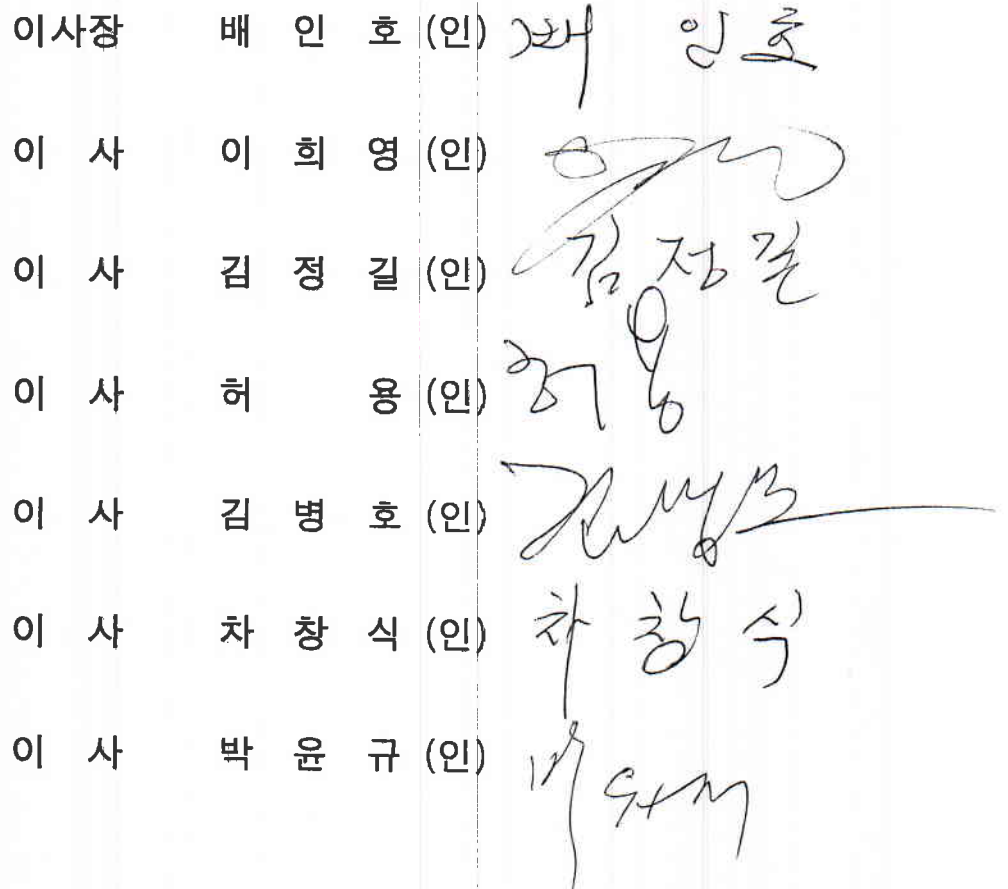 이사장 배 인 호 (인) 배 인호
이 사 이 희 영 (인)
이 사 김 정 길 (인) 김 정 길
이 사 허 용 (인) 허 용
이 사 김 병 호 (인) 김병호
이 사 차 창 식 (인) 차 창 식
이 사 박 윤 규 (인)